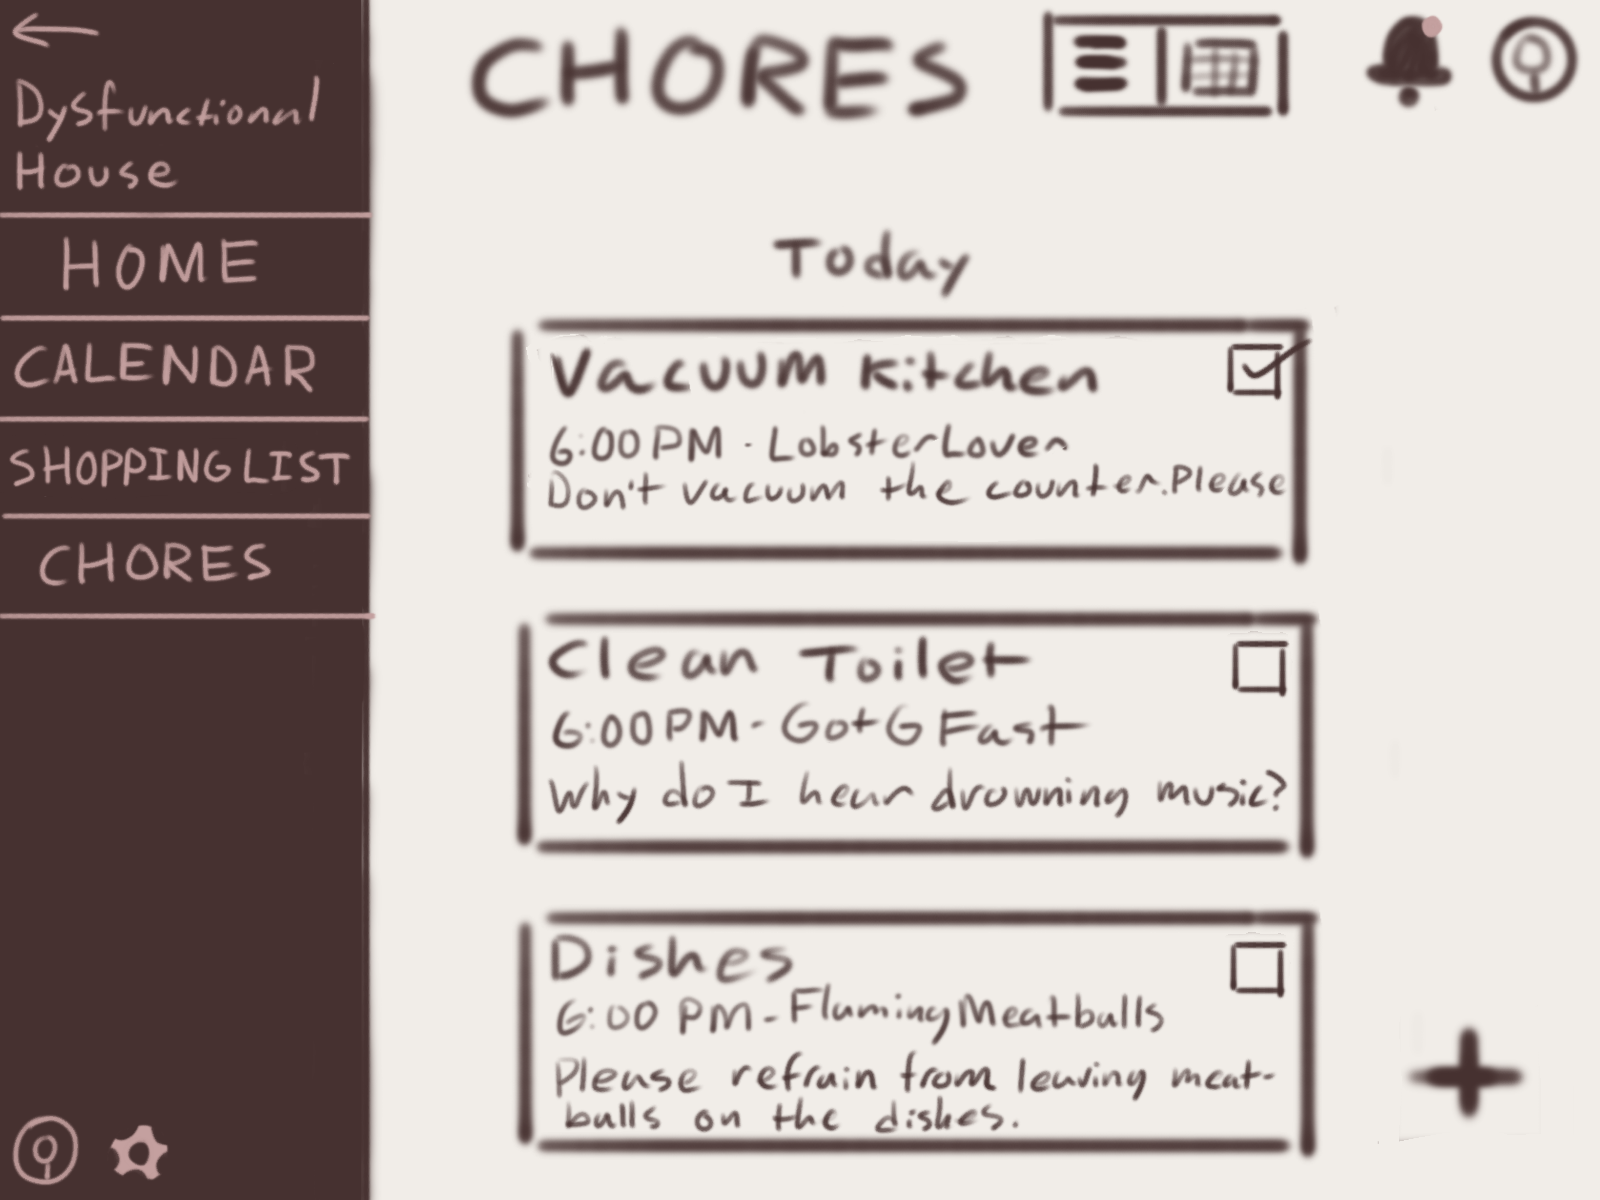 Dysfunctional
House
HOME
CALENDAR
SHOPPING LIST
CHORES
CHORES
Today
Vacuum Kitchen
6:00 PM - LobsterLover
Don't vacuum the counter. Please
Clean Toilet
6:00 PM - GottG Fast
Why do I hear drowning music?
Dishes
6:00 PM - FlamingMeatballs
Please refrain from leaving meat-
balls on the dishes.